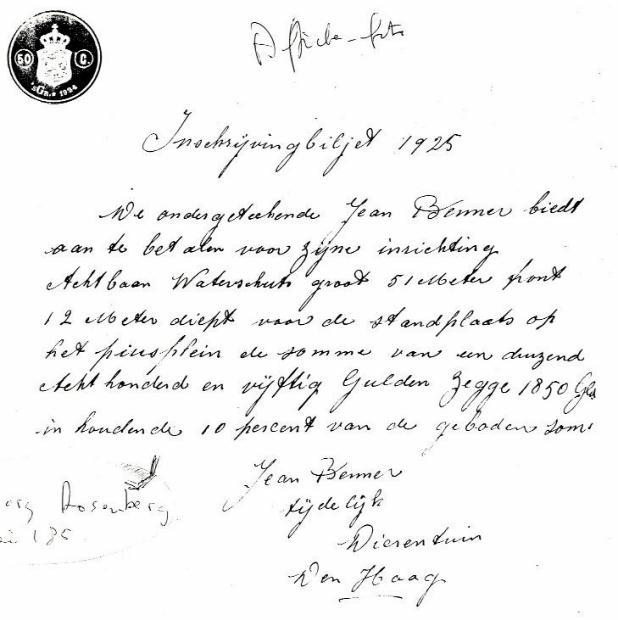 50 C.
'sGr. * 1924
Inschrijvingbiljet 1925
De ondergeteekende Jean Benner biedt
aan te betalen voor zijne inrichting
Achtbaan Waterschuts groot 51 Meter front
12 Meter diept voor de standplaats op
het piusplein de somme van een duuzend
Acht honderd en vijftig Gulden Zegge 1850 Gld
in houdende 10 percent van de geboden som
Jean Benner
tijdelijk
Dierentuin
Den Haag
org Rosenberg
185